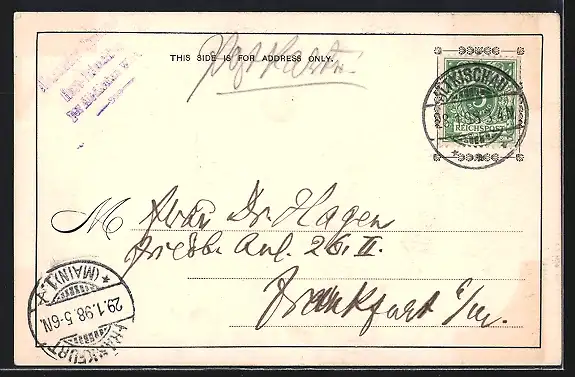 THIS SIDE IS FOR ADDRESS ONLY.
Postkarte.
5
REICHSPOST
M Frau Dr. Hagen
Friedb. Anl. 26. II.
Frankfurt a/m.
FRANKFURT
*(MAIN) 1.
29.1.98.5-6N.